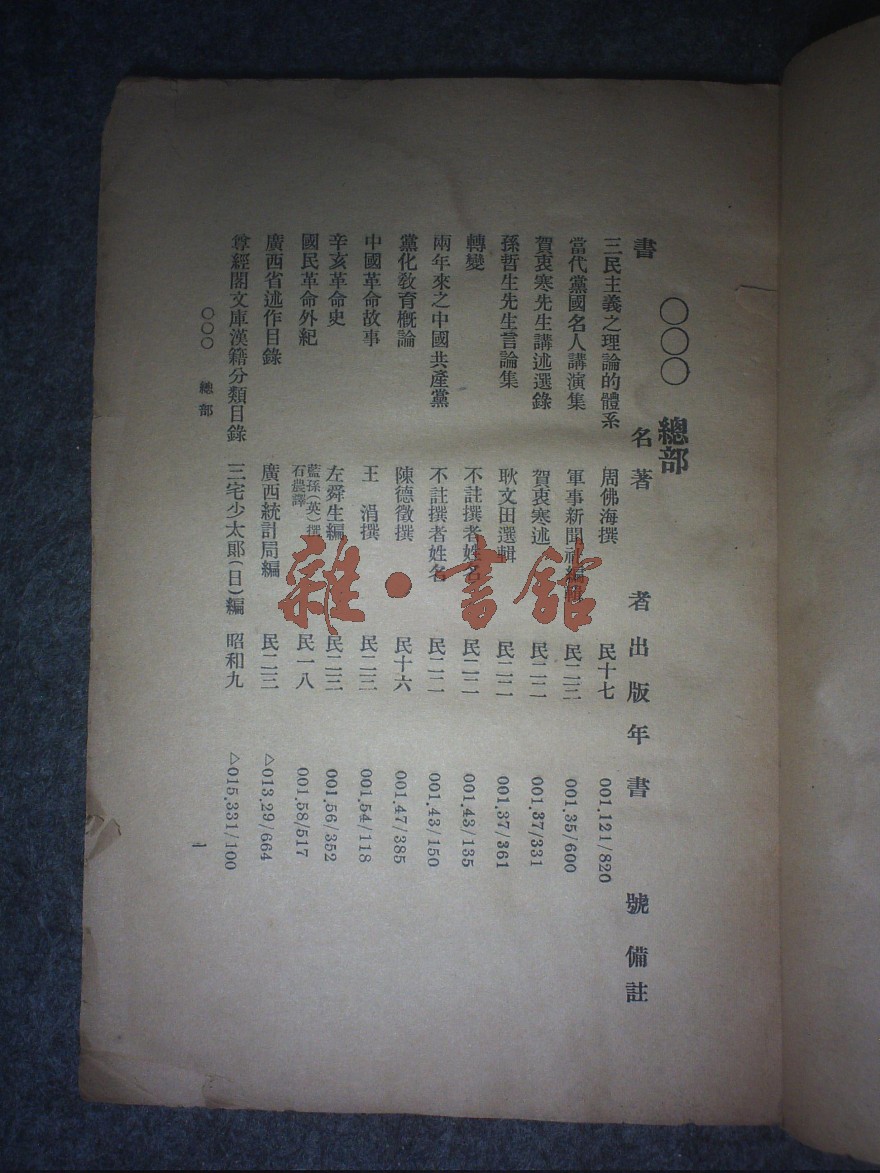 〇〇〇　總部
書名　著者　出版年　書號　備註
三民主義之理論的體系　周佛海撰　民十七　001.121/820
當代黨國名人講演集　軍事新聞社編輯　民二三　001.35/600
賀衷寒先生講述選錄　賀衷寒述　民二二　001.37/331
孫哲生先生言論集　耿文田選輯　民二二　001.37/361
轉變　不註撰者姓名　民二二　001.43/135
兩年來之中國共產黨　不註撰者姓名　民二二　001.43/150
黨化敎育概論　陳德徵撰　民十六　001.47/385
中國革命故事　王　涓撰　民二三　001.54/118
辛亥革命史　左舜生編　民二三　001.56/352
國民革命外紀　藍孫(英)撰　石農譯　民一八　001.58/517
廣西省述作目錄　廣西統計局編　民二三　△013.29/664
尊經閣文庫漢籍分類目錄　三宅少太郞(日)編　昭和九　△015.331/100
〇〇〇　總部　一
雜·書館